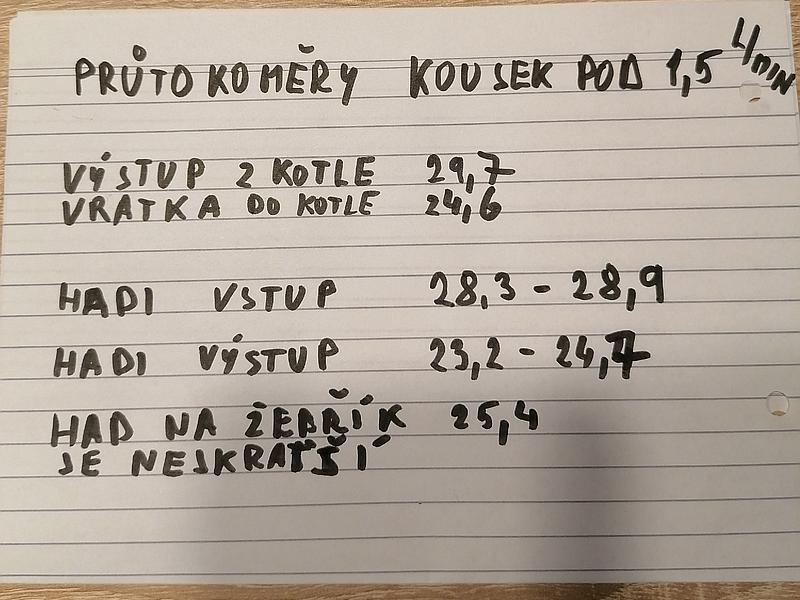 PRŮTOKOMĚRY KOUSEK POD 1,5 L/MIN
VÝSTUP Z KOTLE 29,7
VRATKA DO KOTLE 24,6
HADI VSTUP 28,3 - 28,9
HADI VÝSTUP 23,2 - 24,7
HAD NA ŽEBŘÍK 25,4
JE NEJKRATŠÍ